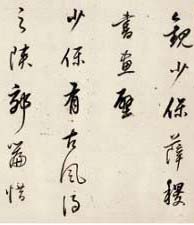 觀少保薛稷
書畫壁
少保有古風得
之陝郊篇惜